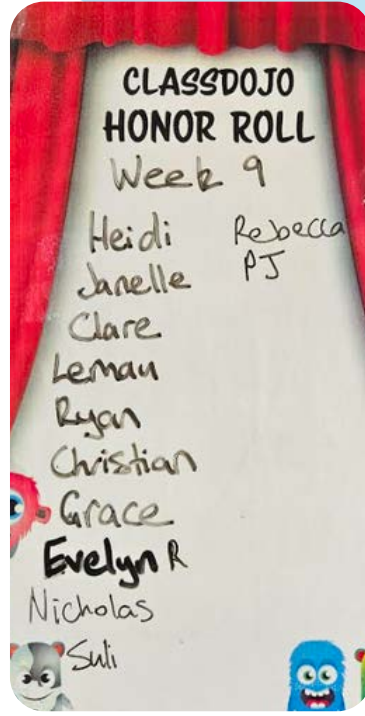 CLASSDOJO
HONOR ROLL
Week 9
Heidi
Janelle
Clare
Leman
Ryan
Christian
Grace
Evelyn R
Nicholas
Suli
Rebecca
PJ